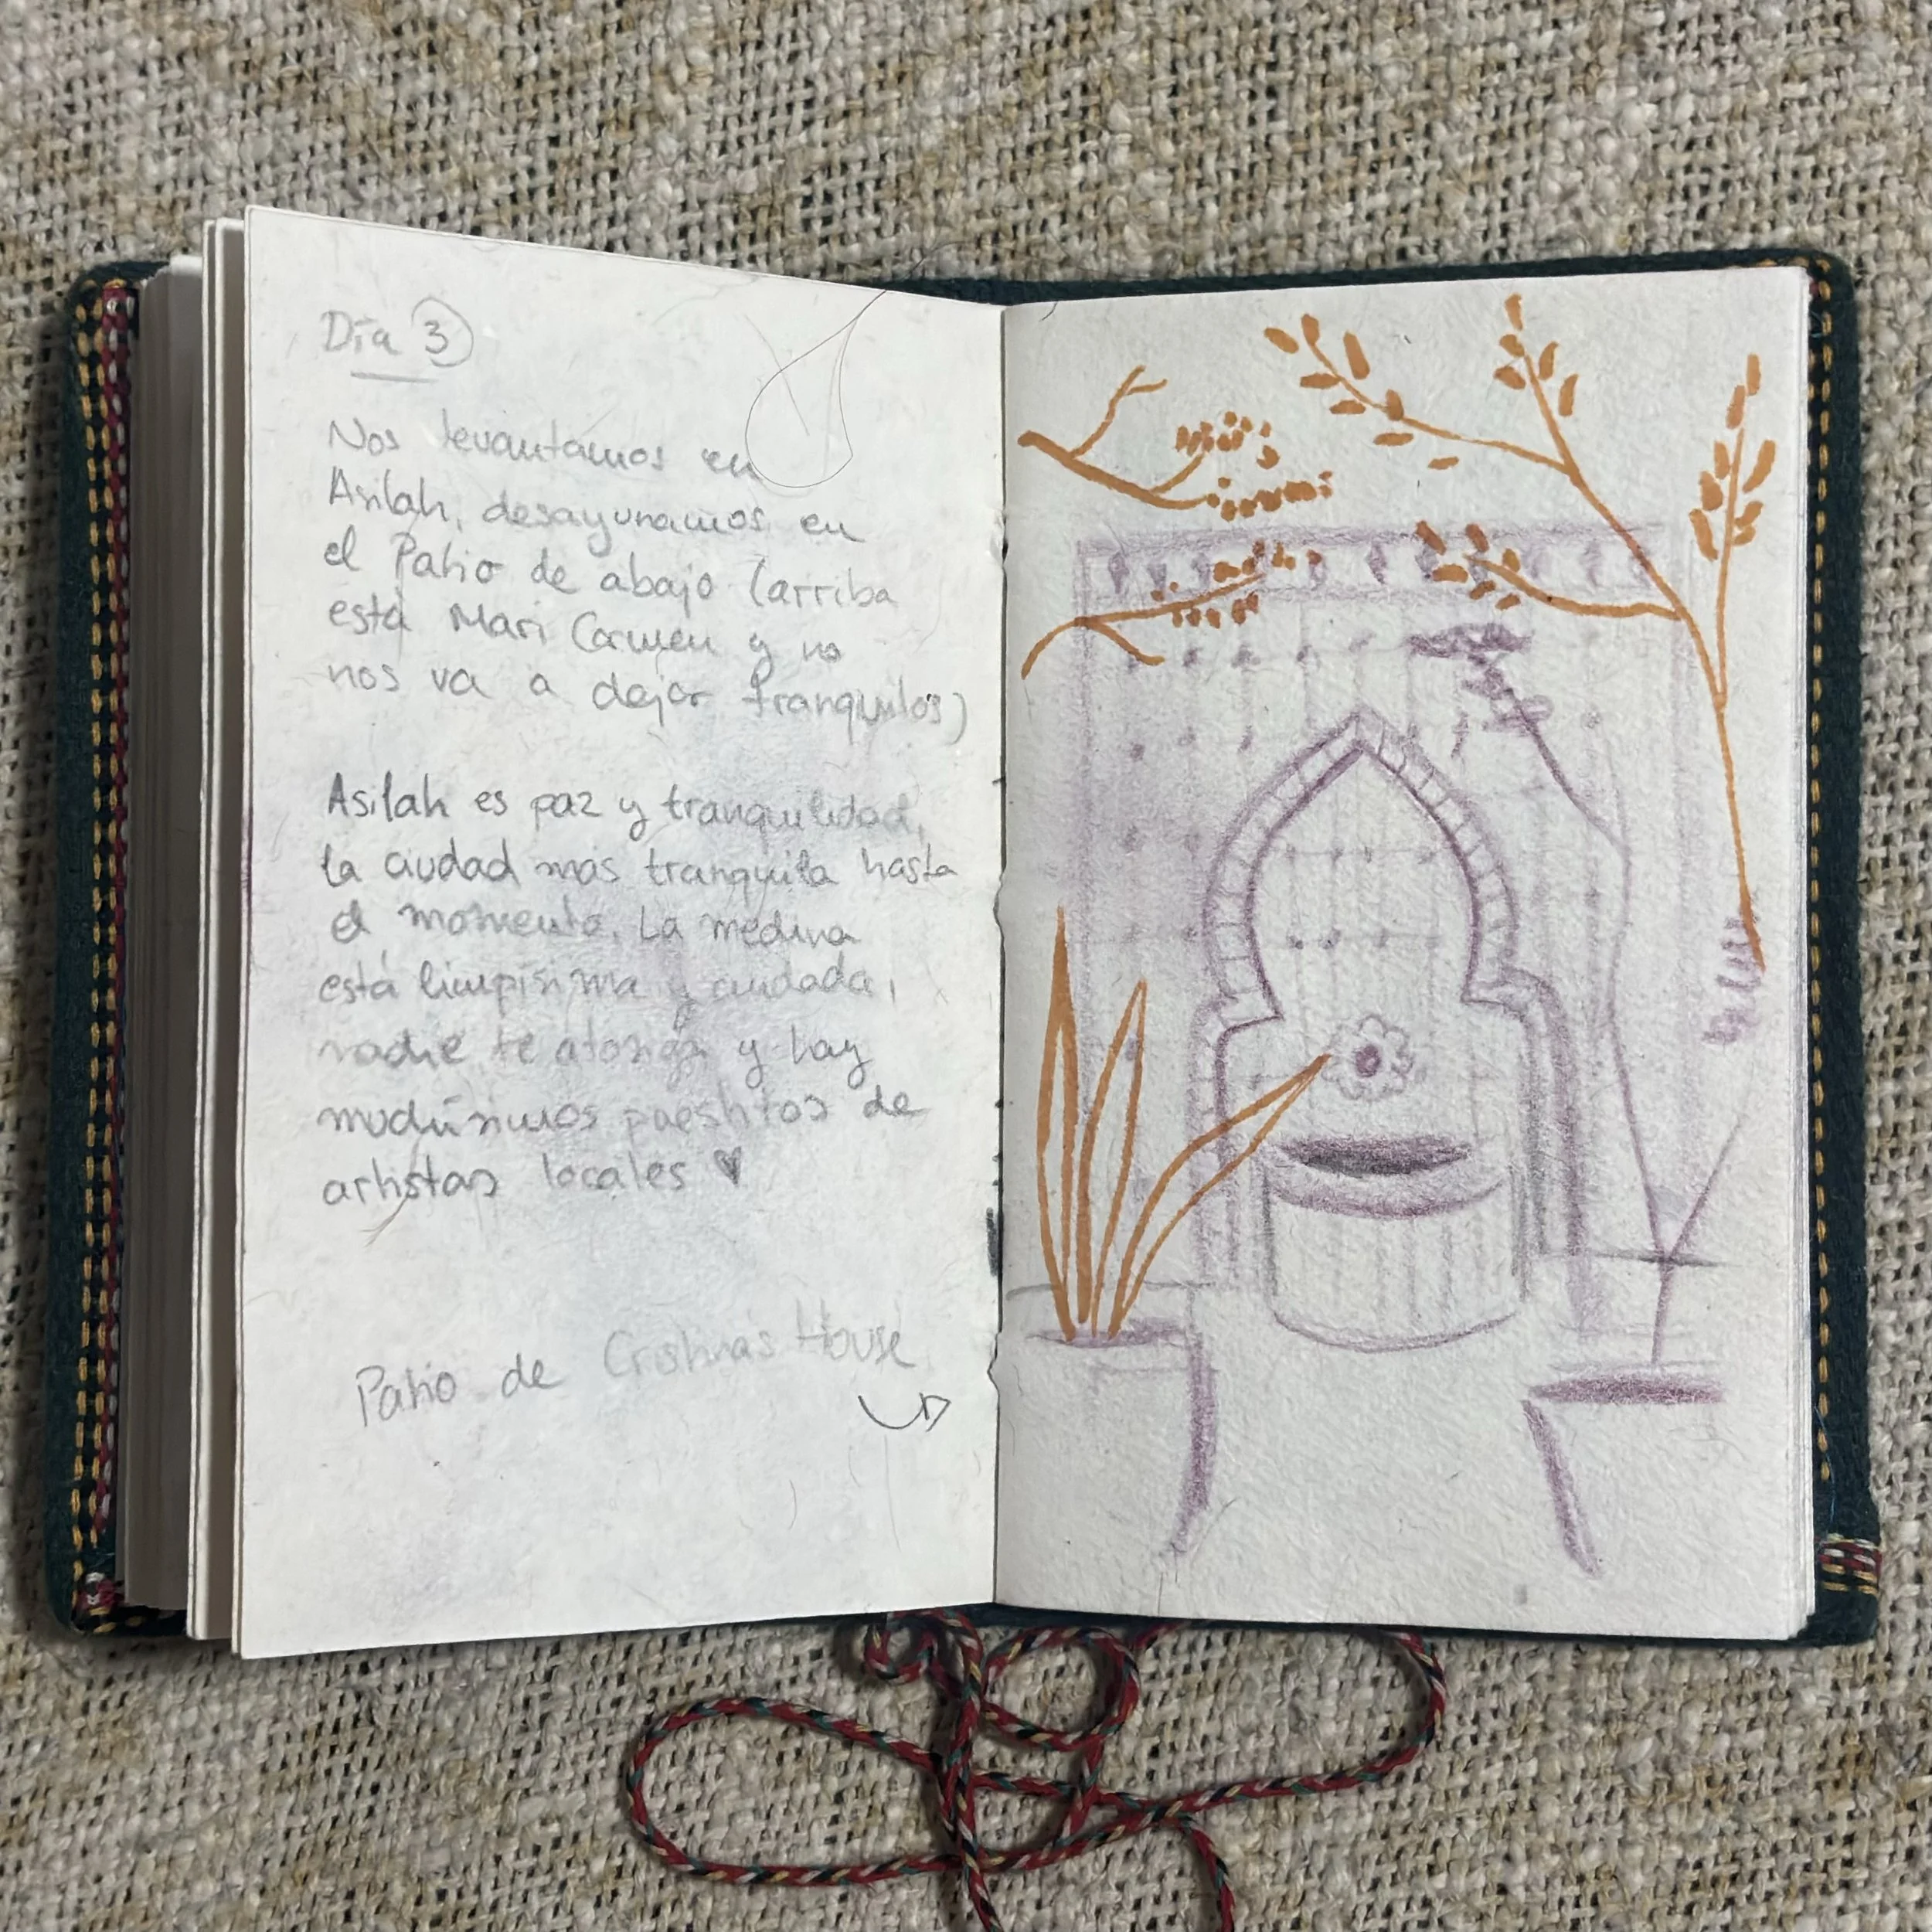 Día 3
Nos levantamos en
Asilah, desayunamos en
el Patio de abajo (arriba
está Mari Carmen y no
nos va a dejar tranquilos)
Asilah es paz y tranquilidad,
la ciudad más tranquila hasta
el momento. La medina
está limpísima y cuidada,
nadie te atosiga y hay
muchísimos puestitos de
artistas locales ♥
Patio de Cristinas House